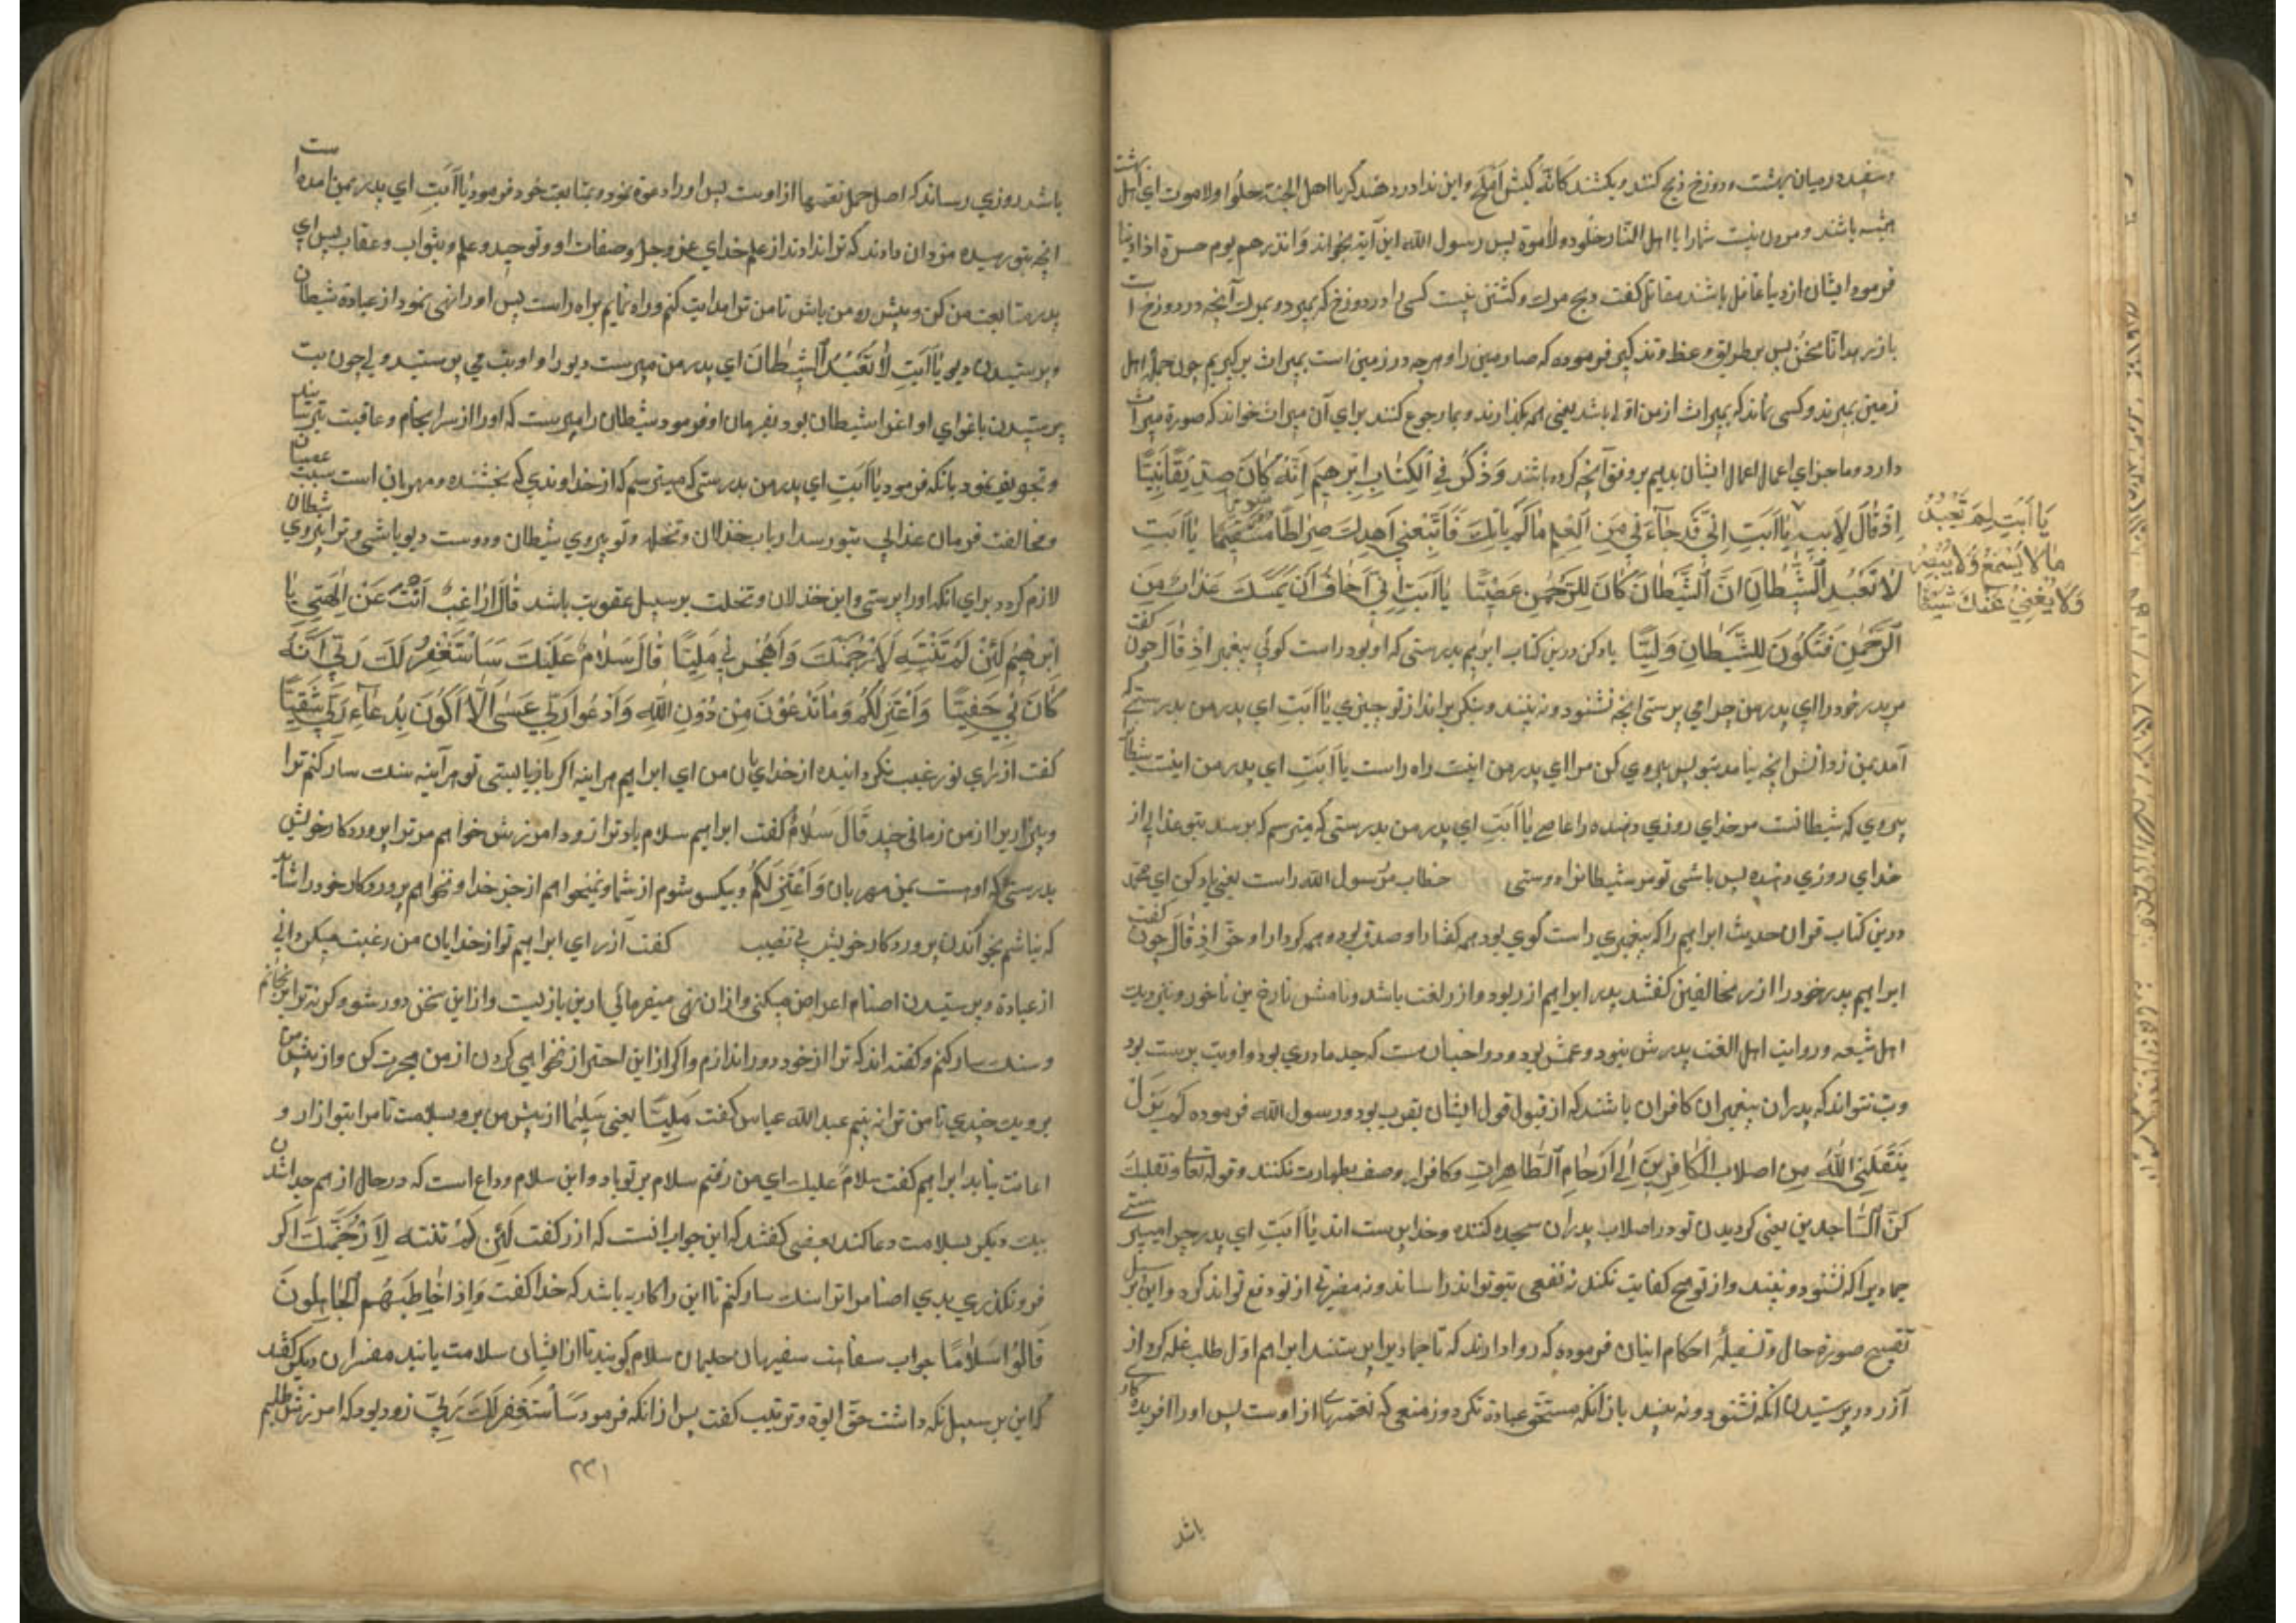 وسفید در میان بهشت و دوزخ ذبح کنند و بکشند کانه کبش املح و این ندا در دهند که یا اهل الجنة خلوا ولا موت ای اهل بهشت
همیشه باشید و مردن نیست شما را یا اهل النار خلود ولا موة پس رسول الله این آیة بخواند وانذرهم یوم حسرة اذا دنیا
فرمود ایشان از دنیا غافل باشند مقاتل گفت ذبح مرک و کشتن نیست کسی را در دوزخ که بمیرد و بمرک آنچه در دوزخ است
پس بر طریق وعظ و تذکیر فرموده که ما زمین را و هرچه در زمین است بمیراث برگیریم چون جمله اهل
زمین بمیرند و کسی نماند که بمیراث از من اولی باشد یعنی همه بگذارند و بما رجوع کنند برای آن میراث خواند که صورة میراث
دارد و ما جزای اعمال ایشان بدیم بر وفق آنچه کرده باشند وَاذْکُر فِی الْکِتَابِ اِبْرٰهیمَ اِنَّهُ کَانَ صِدِّیقًا نَبِیًّا
اِذْ قَالَ لِاَبیهِ یَا اَبَتِ اِنّی قَدْ جَاءَنی مِنَ الْعِلْمِ مَا لَمْ یَأتِکَ فَاتَّبِعْنی اَهْدِکَ صِرَاطًا سَوِیًّا یَا اَبَتِ
یَا اَبَتِ لِمَ تَعْبُدُ
مَا لَا یَسْمَعُ وَلَا یُبْصِرُ
وَلَا یُغْنِی عَنْکَ شَیْئًا
لَا تَعْبُدِ الشَّیْطَانَ اِنَّ الشَّیْطَانَ کَانَ لِلرَّحْمٰنِ عَصِیًّا یَا اَبَتِ اِنّی اَخَافُ اَنْ یَمَسَّکَ عَذَابٌ مِنَ
الرَّحْمٰنِ فَتَکُونَ لِلشَّیْطَانِ وَلِیًّا یاد کن درین کتاب ابراهیم بدرستی که او بود راست کوئی پیغمبر اِذْ قَالَ چون گفت
مر پدر خود را ای پدر من چرا می پرستی انچه نشنود و نه بیند و از تو چیزی یَا اَبَتِ ای پدر من بدرستی که
آمد بمن از دانش انچه نیامد بتو پس پیروی کن مرا ای پدر من اینت راه راست یا اَبَتِ ای پدر من اینت شیطان
پیروی که شیطانست مر خدای روزی دهنده را عاصی یَا اَبَتِ ای پدر من بدرستی که میترسم که برسد بتو عذابی از
خدای روزی دهنده پس باشی تو مر شیطانرا دوستی خطاب مر رسول الله راست یعنی یاد کن ای محمد
درین کتاب قران حدیث ابراهیم را که پیغمبری راست کوی بود همه کفتار او صدق بود و همه کردار او حق اِذْ قَالَ چون گفت
ابراهیم پدر خود را ازر مخالفین کفتند پدر ابراهیم ازر بود و ازر لغت باشد و نامش تارخ بن ناخور و نزدیک
اهل شیعه و روایت اهل الغت پدرش نبود و عمش بود و در اخبار هست که جد مادری بود و او بت پرست بود
و نتواند که پدران پیغمبران کافران باشند که از قبول قول ایشان بود و رسول الله فرموده لم یَزَل
یَنْقُلَنِی اللّٰهُ مِن اصلاب الْکَافِرینَ اِلٰی اَرْحَامِ الطَّاهِرَاتِ و کافرا بوصف بطهارت نکنند و قوله تعالی وتقلبک
فِی السَّاجدین یعنی کردیدن تو در اصلاب پدران سجده کننده و خدا پرست اند یَا اَبَتِ ای پدر چرا میپرستی
جمادیرا که نشنود و نبیند و از تو هیچ کفایت نکند نه نفعی بتو تواند رساند و نه مضرتی از تو دفع تواند کرد و این بر سبیل
تقبیح صورة حال و احکام ایشان فرموده که روا دارند که تا جمادیرا پرستند ابراهیم اول طلب علة کرد از
آزر در پرستیدن آنکه نشنود و نه بیند باز آنکه مستحق عبادة نکرد و منعمی که نعمتها از اوست پس او را آفریده کار
باشد
باشد روزی رساند که اصل جمله نعمتها از اوست پس او را دعوة نمود و بمتابعت خود فرمود یَا اَبَتِ ای پدر بمن امده است
انچه بتو نرسیده که ترا نداند از علم خدای عز وجل و صفات او و توحید و علم و بثواب و عقاب پس ای
پدر متابعت من کن و پیش رو من باش تا من ترا هدایت کنم و راه نمایم براه راست پس او را نهی نمود از عبادة شیطان
و پرستیدن دیو یَا اَبَتِ لَا تَعْبُدِ الشَّیْطَانَ ای پدر من مپرست دیو را و او بت می پرستید ولی چون بت
پرستیدن باغوای او اغوا شیطان بود بفرمان او فرمود شیطان را مپرست که او را از سرانجام و عاقبت بترسانید
و تخویف نمود بانکه فرمود یَا اَبَتِ ای پدر من بدرستی که میترسم که از خداوندی که بخشنده و مهربان است بسبب عصیان
و مخالفت فرمان عذابی بتو رسد ارباب خذلان و تخلیه و تو پیروی شیطان و دوست دیو باشی و ترا پیروی شیطان
لازم کردد برای انکه او را پرستی و این خذلان و تخلیت بر سبیل عقوبت باشد قَالَ اَرَاغِبٌ اَنْتَ عَنْ اٰلِهَتی یَا
اِبْرٰهیمُ لَئِنْ لَمْ تَنْتَهِ لَاَرْجُمَنَّکَ وَاهْجُرْنی مَلِیًّا قَالَ سَلَامٌ عَلَیْکَ سَاَسْتَغْفِرُ لَکَ رَبّی اِنَّهُ
کَانَ بی حَفِیًّا وَاَعْتَزِلُکُمْ وَمَا تَدْعُونَ مِنْ دُونِ اللّٰهِ وَاَدْعُوا رَبّی عَسٰی اَلَّا اَکُونَ بِدُعَاءِ رَبّی شَقِیًّا
کفت ازر ای تو رغبت کردانیده از خدایان من ای ابراهیم هر اینه اکر باز نایستی تو هر آینه سنک سار کنم ترا
و ببر از من زمانی چند قَالَ سَلَامٌ کفت ابراهیم سلام باد ترا زود امرزش خواهم مر ترا پروردکار خویش
بدرستی که اوست بمن مهربان وَاَعْتَزِلُکُمْ و بیکسو شوم از شما و نمیخواهم از جز خدا و بخواهم پروردکار خود را شاید
که نباشم بخواندن پروردکار خویش بی نصیب کفت آزر ای ابراهیم تو از خدایان من رغبت میکردانی
از عبادة و پرستیدن اصنام اعراض میکنی و از ان نهی میفرمائی ازین بازایست و از این سخن دور شو و کرنه ترا برنجانم
و سنک سار کنم و کفته اند که ترا از خود دور اندازم و اکر از این احتراز نخواهی کردن از من هجرت کن و از پیش من
برو یک چندی تا من ترا نه بینم عبد الله عباس کفت مَلِیًّا یعنی سَلِیمًا از پیش من برو بسلامت تا مرا بتو ازار و
اعانت نیاید ابراهیم کفت سلامٌ علیک ای من رفتم سلام بر تو باد و این سلام وداع است که در حال از هم جدا شدن
بیک دیکر بسلامت دعا کنند بعضی کفتند که این جواب انست که ازر کفت لَئِن لَمْ تنته لَاَرْجُمَنَّکَ اکر
فرو نکذری بدی اصنام را ترا سنک سار کنم تا این باشد که خدا کفت وَاِذَا خَاطَبَهُم الْجَاهِلُونَ
قَالُوا سَلَامًا جواب سفاهت سفیهان حلیمان سلام کویند تا از ایشان سلامت یابند مفسران دیکر کفتند
که این بر سبیل نکه داشت حق ابوة و تربیت کفت پس از انکه فرمود سَاَسْتَغْفِر لَکَ رَبّی زود بود که امرزش طلبم
۲۳۱